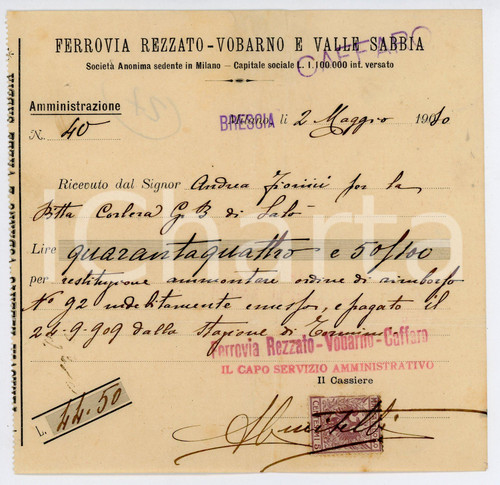 FERROVIA REZZATO-VOBARNO E VALLE SABBIA
CAFFARO
Società Anonima sedente in Milano — Capitale sociale L. 1.100.000 int. versato
Amministrazione
N. 40
BRESCIA li 2 Maggio 1910
Ricevuto dal Signor Andrea Fiorini per la
Ditta Corlera G B di Salò
Lire quarantaquattro e 50/100
per restituzione ammontare ordine di rimborso
N° 92 indebitamente emesso, e pagato il
24-9-909 dalla Stazione di
Ferrovia Rezzato-Vobarno-Caffaro
IL CAPO SERVIZIO AMMINISTRATIVO
Il Cassiere
L. 44.50
iCharta